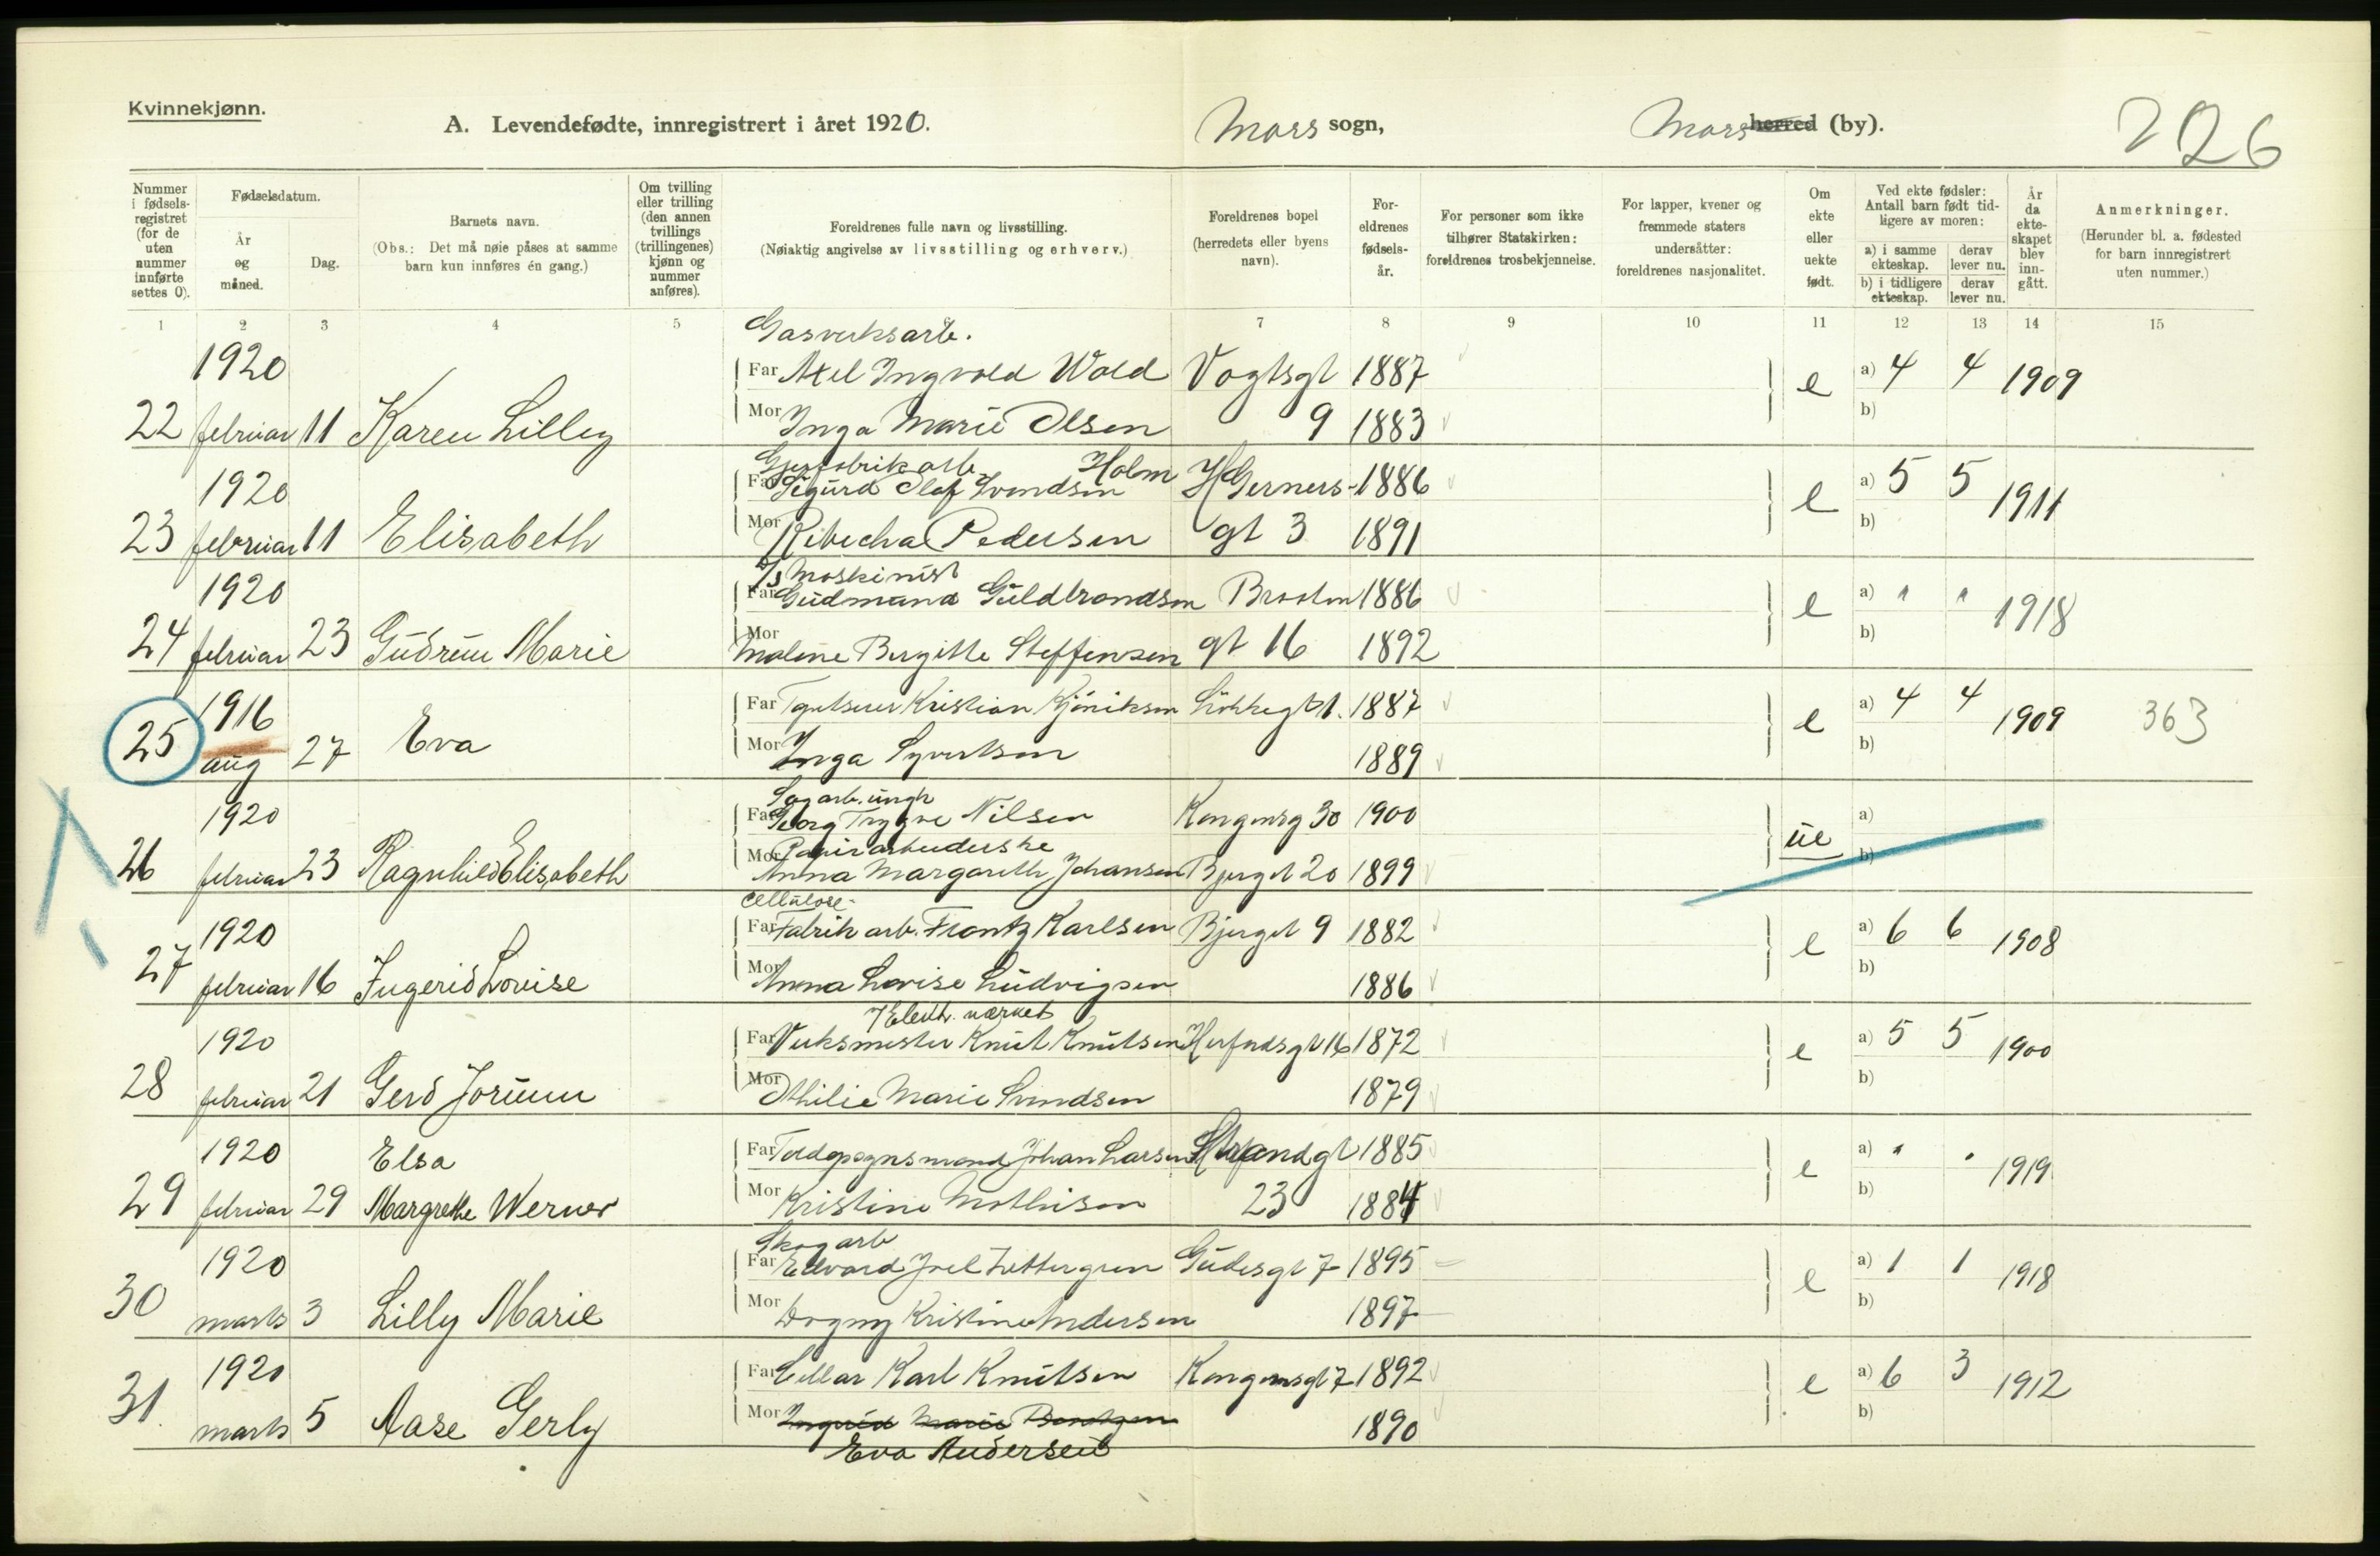 Kvinnekjønn.
A. Levendefødte, innregistrert i året 1920. Moss sogn, Moss herred (by). 226
Nummer i fødsels-registret (for de uten nummer innførte settes 0).
Fødselsdatum.
År og måned.
Dag.
Barnets navn.
(Obs.: Det må nøie påses at samme barn kun innføres én gang.)
Om tvilling eller trilling (den annen tvillings (trillingenes) kjønn og nummer anføres).
Foreldrenes fulle navn og livsstilling.
(Nøiaktig angivelse av livsstilling og erhverv.)
Foreldrenes bopel (herredets eller byens navn).
For-eldrenes fødsels-år.
For personer som ikke tilhører Statskirken: foreldrenes trosbekjennelse.
For lapper, kvener og fremmede staters undersåtter: foreldrenes nasjonalitet.
Om ekte eller uekte født.
Ved ekte fødsler: Antall barn født tid-ligere av moren:
a) i samme ekteskap. derav lever nu.
b) i tidligere ekteskap. derav lever nu.
År da ekte-skapet blev inn-gått.
Anmerkninger.
(Herunder bl. a. fødested for barn innregistrert uten nummer.)
1 2 3 4 5 7 8 9 10 11 12 13 14 15
Gasverksarb.
1920 Far Axel Ingvold Wold Vogtsgt 1887 e a) 4 4 1909
22 februar 11 Karen Lilley Mor Inga Marie Olsen 9 1883 b)
Holm
1920 Far Sigurd Olaf Svendsen H Gerners- 1886 e a) 5 5 1911
23 februar 11 Elisabeth Mor Rebecha Pedersen gt 3 1891 b)
Maskinist
1920 Far Gudmund Guldbrandsen 1886 e a) " " 1918
24 februar 23 Gudrun Marie Mor Malene Birgitte Steffensen gt 16 1892 b)
1916 Far Kristian 1887 e a) 4 4 1909 363
25 aug 27 Eva Mor Inga Syvertsen 1889 b)
Sagarb. ungk
1920 Far Georg Trygve Nilsen Kongensg 30 1900 ue a)
Papirarbeiderske
26 februar 23 Ragnhild Elisabeth Mor Anna Margareth Johansen Bjerget 20 1899 b)
Cellulose-
1920 Far Fabrik arb. Frantz Karlsen Bjerget 9 1882 e a) 6 6 1908
27 februar 16 Ingerid Lovise Mor Anna Lovise Ludvigsen 1886 b)
v/Elektr. værket
1920 Far Verksmester Knut Knutsen 16 1872 e a) 5 5 1900
28 februar 21 Gerd Jorunn Mor Othilie Marie Svendsen 1879 b)
1920 Elsa Far Toldopsynsmand Johan Larsen Strandgt 1885 e a) " " 1919
29 februar 29 Margrethe Werner Mor Kristine Mathisen 23 1884 b)
Skogarb
1920 Far Edvard Joel Zettergren Gudesgt 7 1895 e a) 1 1 1918
30 marts 3 Lilly Marie Mor Dagny Kristine Andersen 1897 b)
1920 Far Karl Knutsen Kongensgt 7 1892 e a) 6 3 1912
31 marts 5 Aase Gerly Mor Ingrid Marie 1890 b)
Eva Andersen